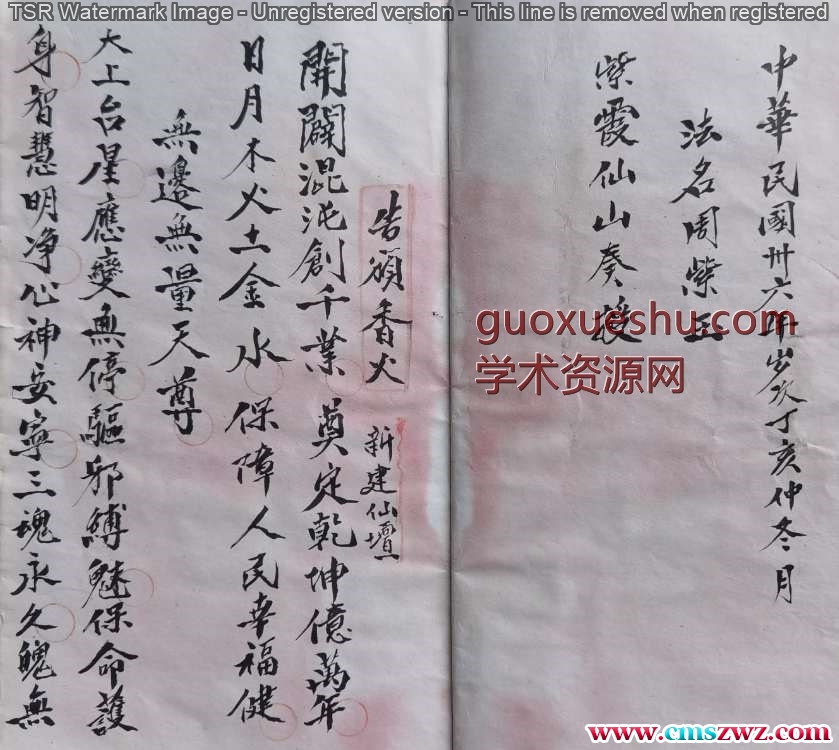 TSR Watermark Image - Unregistered version - This line is removed when registered
中華民國卅六年歲次丁亥仲冬月
法名周紫玉
紫霞仙山奏授
guoxueshu.com
学术资源网
告頒香火 新建仙壇
開闢混沌創千業 奠定乾坤億萬年
日月木火土金水 保障人民幸福健
無邊無量天尊
太上台星應變無停驅邪縛魅保命護
身智慧明净心神安寧三魂永久魄無
www.cmszwz.com